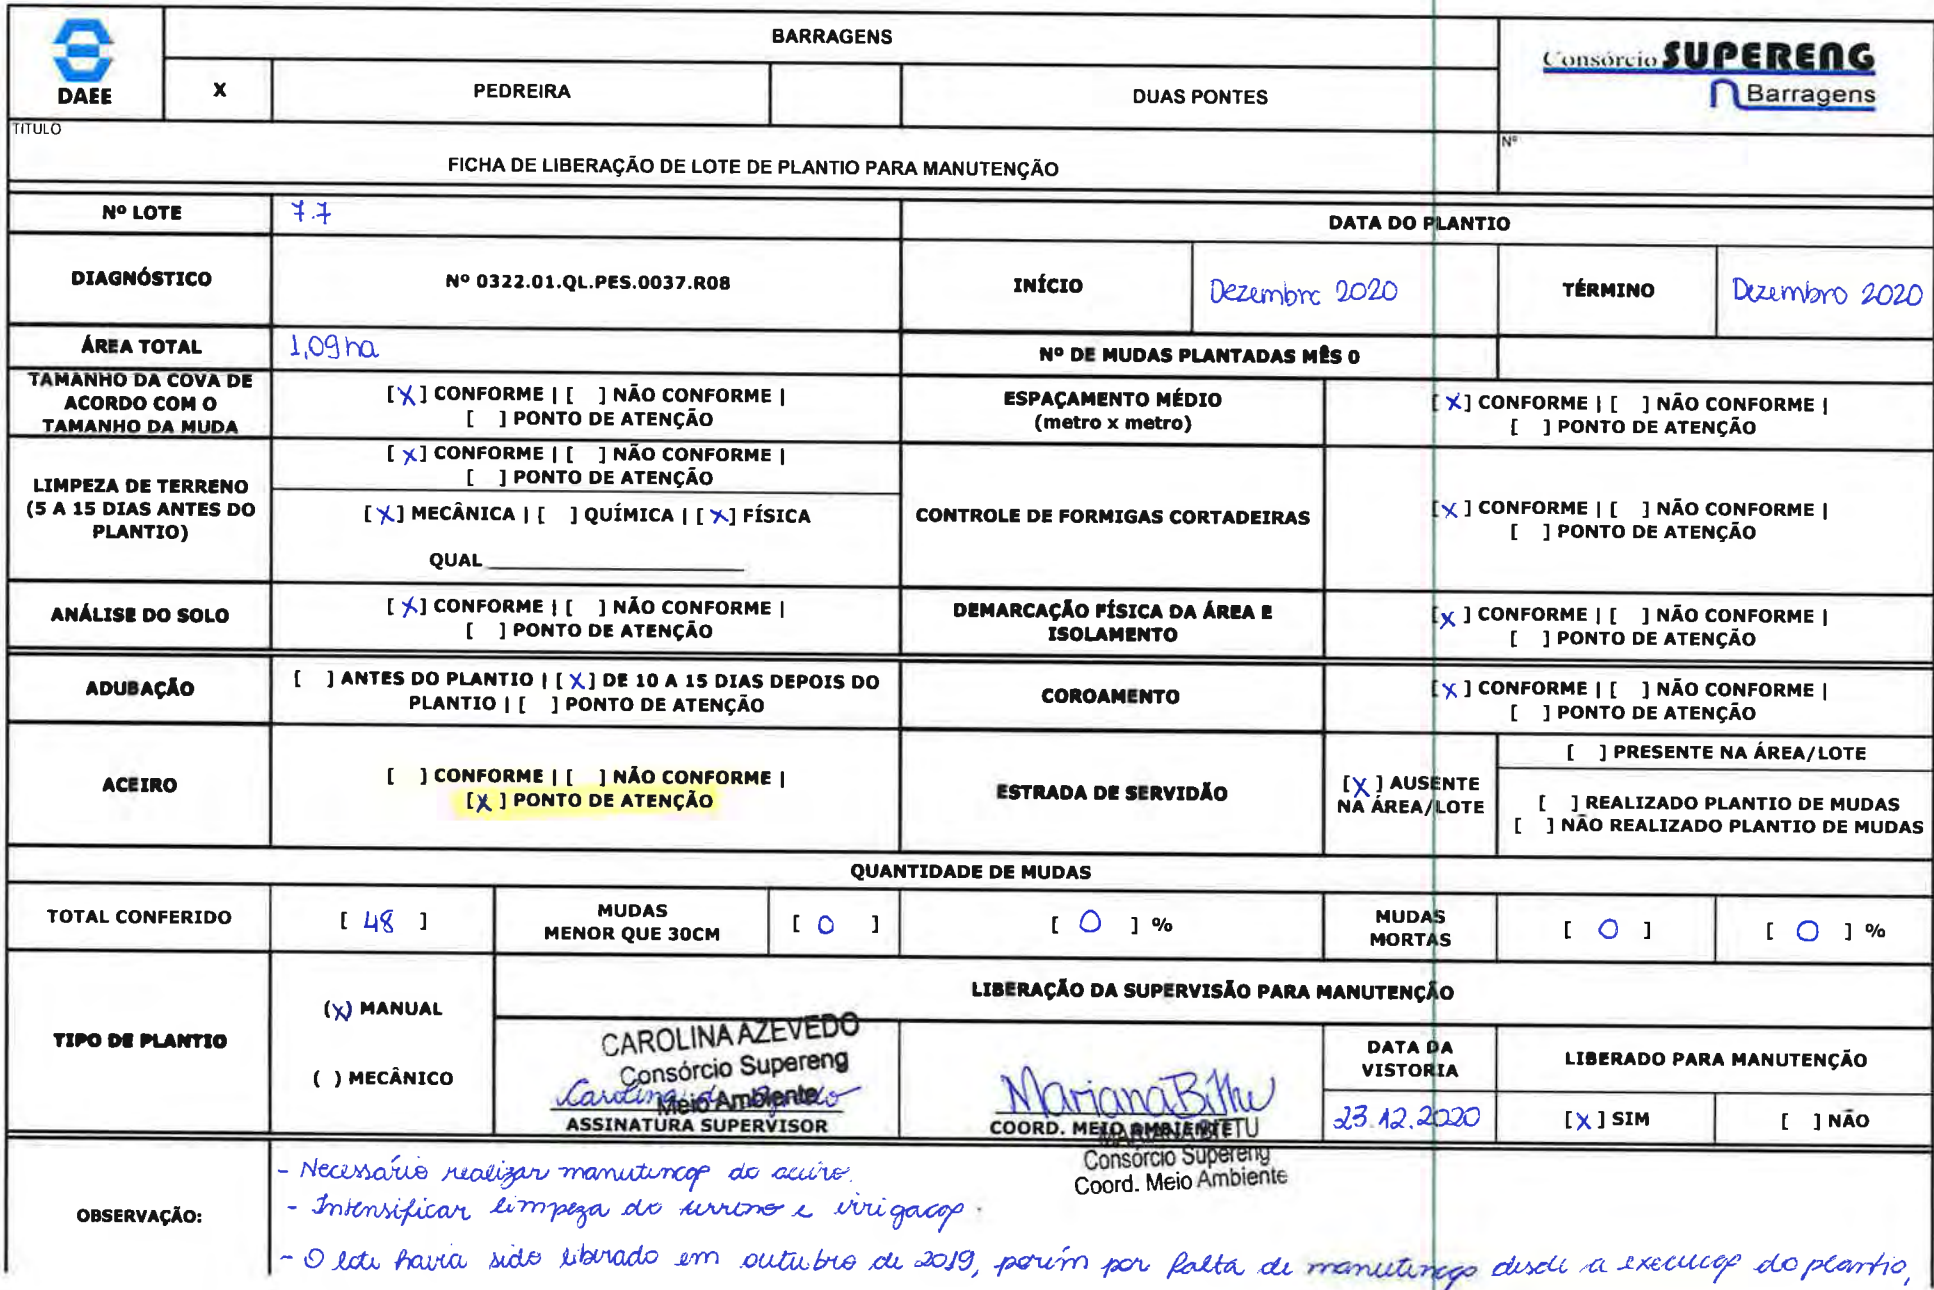 DAEE
BARRAGENS
X PEDREIRA DUAS PONTES
Consórcio SUPERENG
Barragens
TÍTULO
FICHA DE LIBERAÇÃO DE LOTE DE PLANTIO PARA MANUTENÇÃO
Nº
Nº LOTE 7.7
DATA DO PLANTIO
DIAGNÓSTICO Nº 0322.01.QL.PES.0037.R08
INÍCIO Dezembro 2020 TÉRMINO Dezembro 2020
ÁREA TOTAL 1,09 ha
Nº DE MUDAS PLANTADAS MÊS 0
TAMANHO DA COVA DE
ACORDO COM O
TAMANHO DA MUDA
[X] CONFORME | [ ] NÃO CONFORME |
[ ] PONTO DE ATENÇÃO
ESPAÇAMENTO MÉDIO
(metro x metro)
[X] CONFORME | [ ] NÃO CONFORME |
[ ] PONTO DE ATENÇÃO
LIMPEZA DE TERRENO
(5 A 15 DIAS ANTES DO
PLANTIO)
[X] CONFORME | [ ] NÃO CONFORME |
[ ] PONTO DE ATENÇÃO
[X] MECÂNICA | [ ] QUÍMICA | [X] FÍSICA
QUAL ____________________
CONTROLE DE FORMIGAS CORTADEIRAS
[X] CONFORME | [ ] NÃO CONFORME |
[ ] PONTO DE ATENÇÃO
ANÁLISE DO SOLO
[X] CONFORME | [ ] NÃO CONFORME |
[ ] PONTO DE ATENÇÃO
DEMARCAÇÃO FÍSICA DA ÁREA E
ISOLAMENTO
[X] CONFORME | [ ] NÃO CONFORME |
[ ] PONTO DE ATENÇÃO
ADUBAÇÃO
[ ] ANTES DO PLANTIO | [X] DE 10 A 15 DIAS DEPOIS DO
PLANTIO | [ ] PONTO DE ATENÇÃO
COROAMENTO
[X] CONFORME | [ ] NÃO CONFORME |
[ ] PONTO DE ATENÇÃO
ACEIRO
[ ] CONFORME | [ ] NÃO CONFORME |
[X] PONTO DE ATENÇÃO
ESTRADA DE SERVIDÃO
[X] AUSENTE
NA ÁREA/LOTE
[ ] PRESENTE NA ÁREA/LOTE
[ ] REALIZADO PLANTIO DE MUDAS
[ ] NÃO REALIZADO PLANTIO DE MUDAS
QUANTIDADE DE MUDAS
TOTAL CONFERIDO [ 48 ]
MUDAS
MENOR QUE 30CM
[ 0 ] [ 0 ] %
MUDAS
MORTAS
[ 0 ] [ 0 ] %
TIPO DE PLANTIO
(X) MANUAL
( ) MECÂNICO
LIBERAÇÃO DA SUPERVISÃO PARA MANUTENÇÃO
CAROLINA AZEVEDO
Consórcio Supereng
Meio Ambiente
ASSINATURA SUPERVISOR
Mariana Bittu
COORD. MEIO AMBIENTE
MARIANA BITTU
Consórcio Supereng
Coord. Meio Ambiente
DATA DA
VISTORIA
23.12.2020
LIBERADO PARA MANUTENÇÃO
[X] SIM [ ] NÃO
OBSERVAÇÃO:
- Necessário realizar manutenção do aceiro.
- Intensificar limpeza do terreno e irrigação.
- O lote havia sido liberado em outubro de 2019, porém por falta de manutenção desde a execução do plantio,